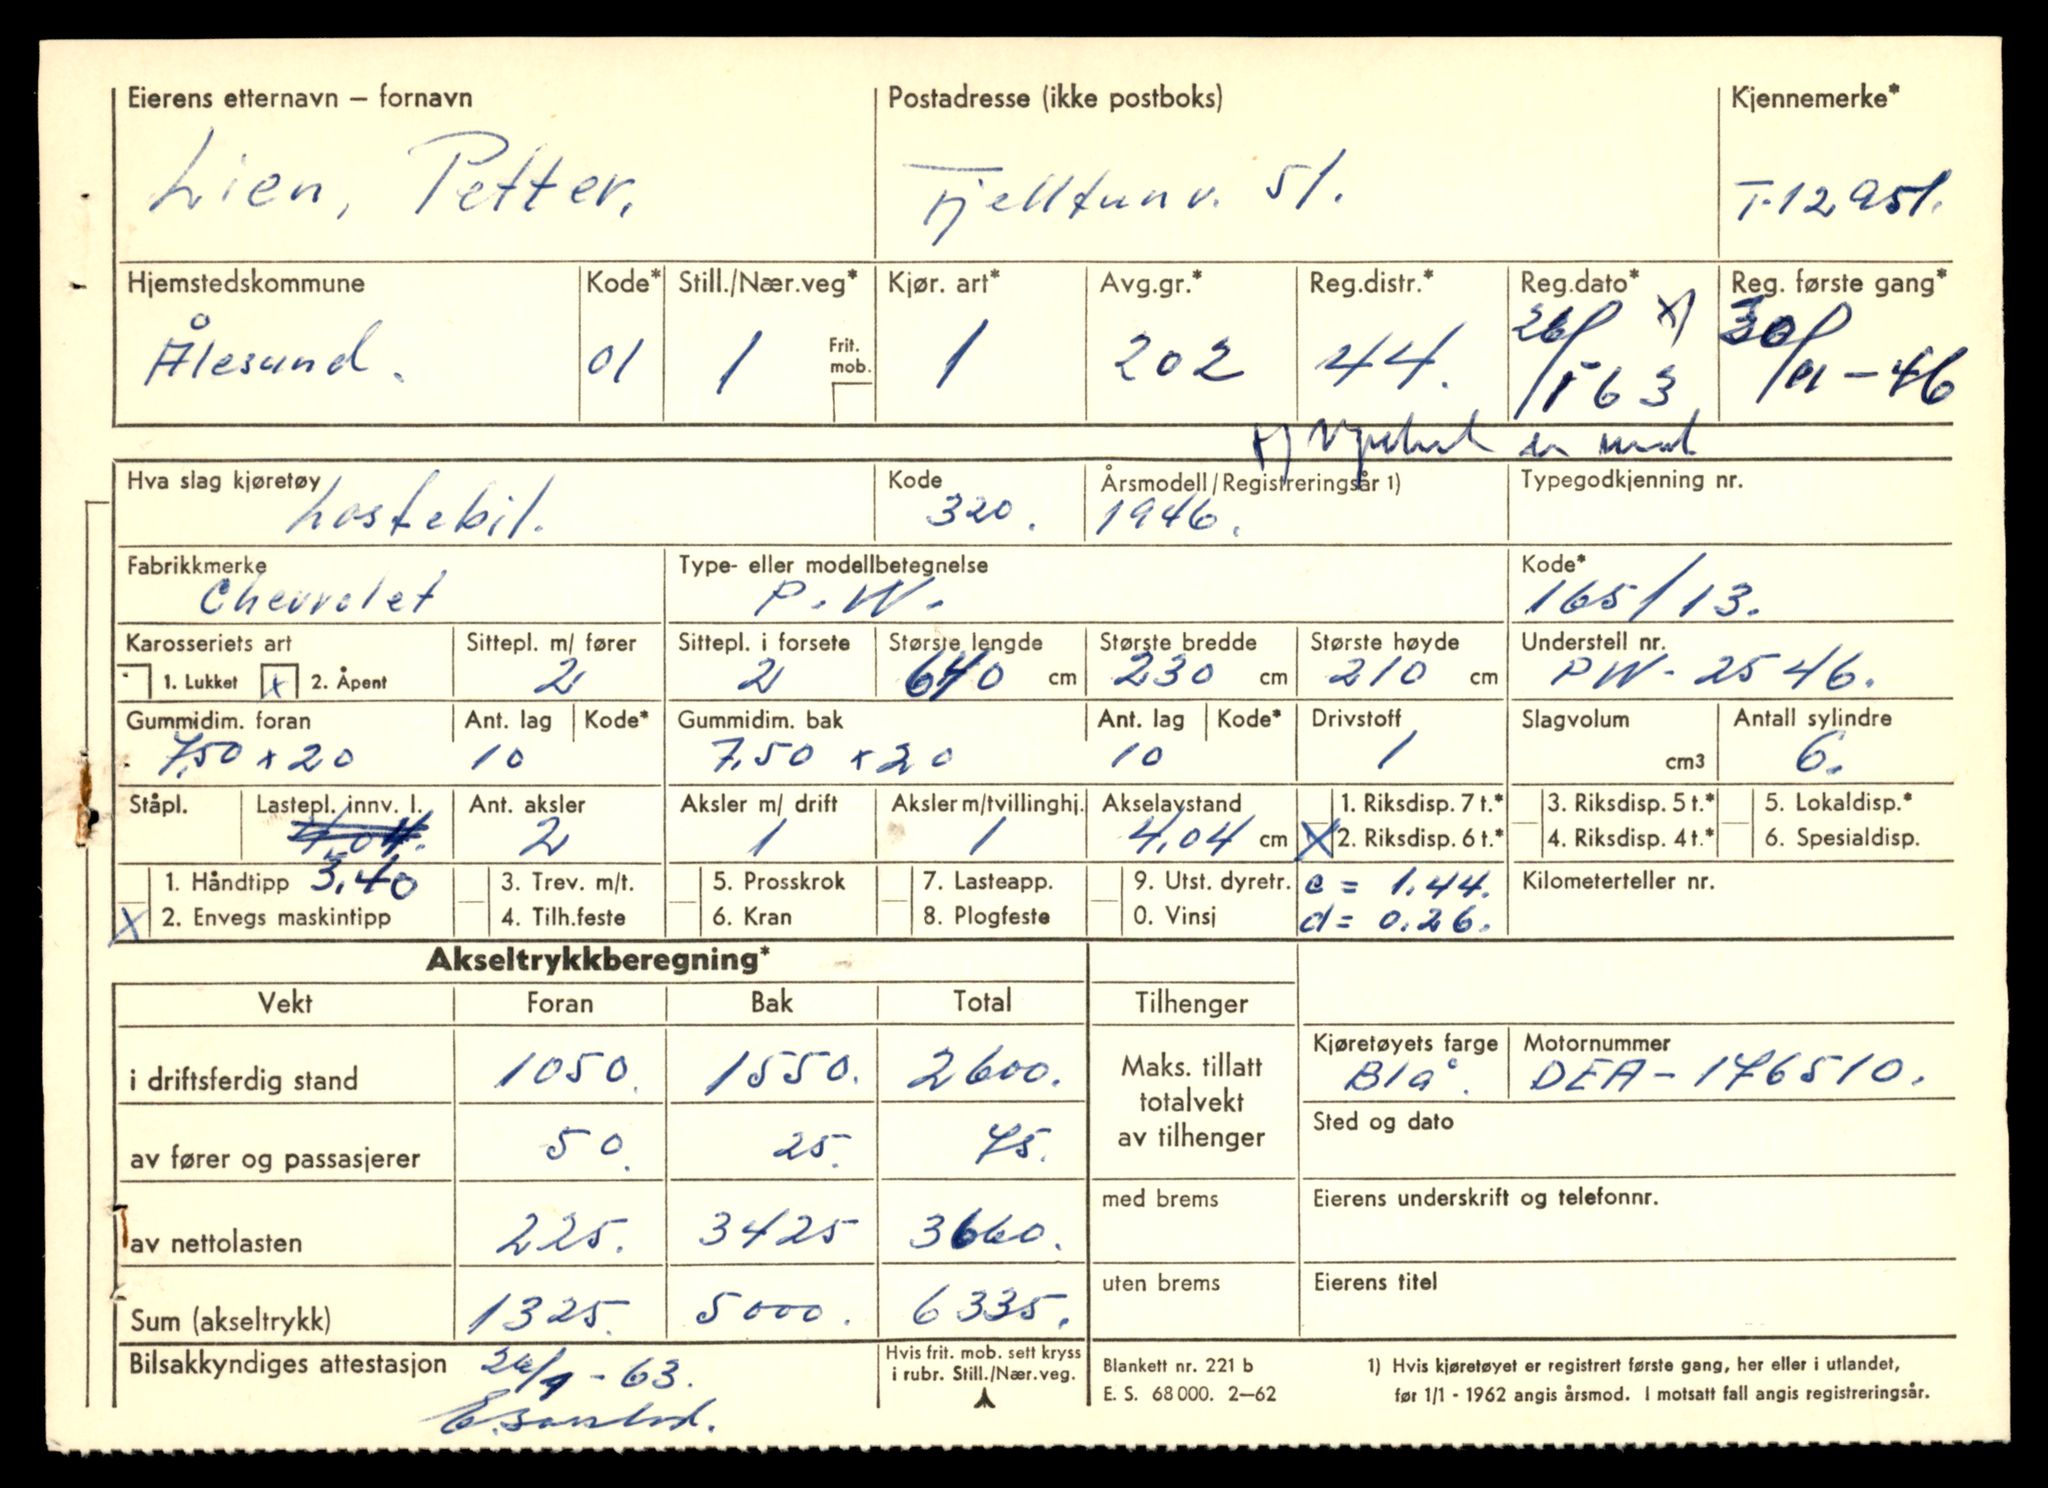 Eierens etternavn – fornavn Postadresse (ikke postboks) Kjennemerke*
Lien, Petter. Fjelltunv. 51. T-12951.
Hjemstedskommune Kode* Still./Nær.veg* Kjør. art* Avg.gr.* Reg.distr.* Reg.dato* Reg. første gang*
Ålesund. 01 1 Frit. mob. 1 202 44. 26/ x) 30/
63 11-46
x)
Hva slag kjøretøy Kode Årsmodell/Registreringsår 1) Typegodkjenning nr.
Lastebil. 320. 1946.
Fabrikkmerke Type- eller modellbetegnelse Kode*
Chevrolet P.W. 165/13.
Karosseriets art Sittepl. m/ fører Sittepl. i forsete Største lengde Største bredde Største høyde Understell nr.
1. Lukket x 2. Åpent 2 2 640 cm 230 cm 210 cm PW-2546.
Gummidim. foran Ant. lag Kode* Gummidim. bak Ant. lag Kode* Drivstoff Slagvolum Antall sylindre
7,50 x 20 10 7,50 x 20 10 1 cm3 6.
Ståpl. Lastepl. innv. l. Ant. aksler Aksler m/ drift Aksler m/tvillinghj. Akselavstand 1. Riksdisp. 7 t.* 3. Riksdisp. 5 t.* 5. Lokaldisp.*
4.04. 2 1 1 4,04 cm X 2. Riksdisp. 6 t.* 4. Riksdisp. 4 t.* 6. Spesialdisp.
1. Håndtipp 3,40 3. Trev. m/t. 5. Prosskrok 7. Lasteapp. 9. Utst. dyretr. c = 1.44. Kilometerteller nr.
X 2. Envegs maskintipp 4. Tilh.feste 6. Kran 8. Plogfeste 0. Vinsj d = 0.26.
Akseltrykkberegning*
Vekt Foran Bak Total Tilhenger
i driftsferdig stand 1050. 1550. 2600. Maks. tillatt totalvekt av tilhenger Kjøretøyets farge Motornummer
Blå. DEA-176510.
av fører og passasjerer 50. 25. 75. Sted og dato
av nettolasten 225. 3425 3660. med brems Eierens underskrift og telefonnr.
Sum (akseltrykk) 1325. 5000. 6335. uten brems Eierens titel
Bilsakkyndiges attestasjon 26/9-63. Hvis frit. mob. sett kryss Blankett nr. 221 b 1) Hvis kjøretøyet er registrert første gang, her eller i utlandet,
i rubr. Still./Nær.veg. E. S. 68 000. 2–62 før 1/1 - 1962 angis årsmod. I motsatt fall angis registreringsår.